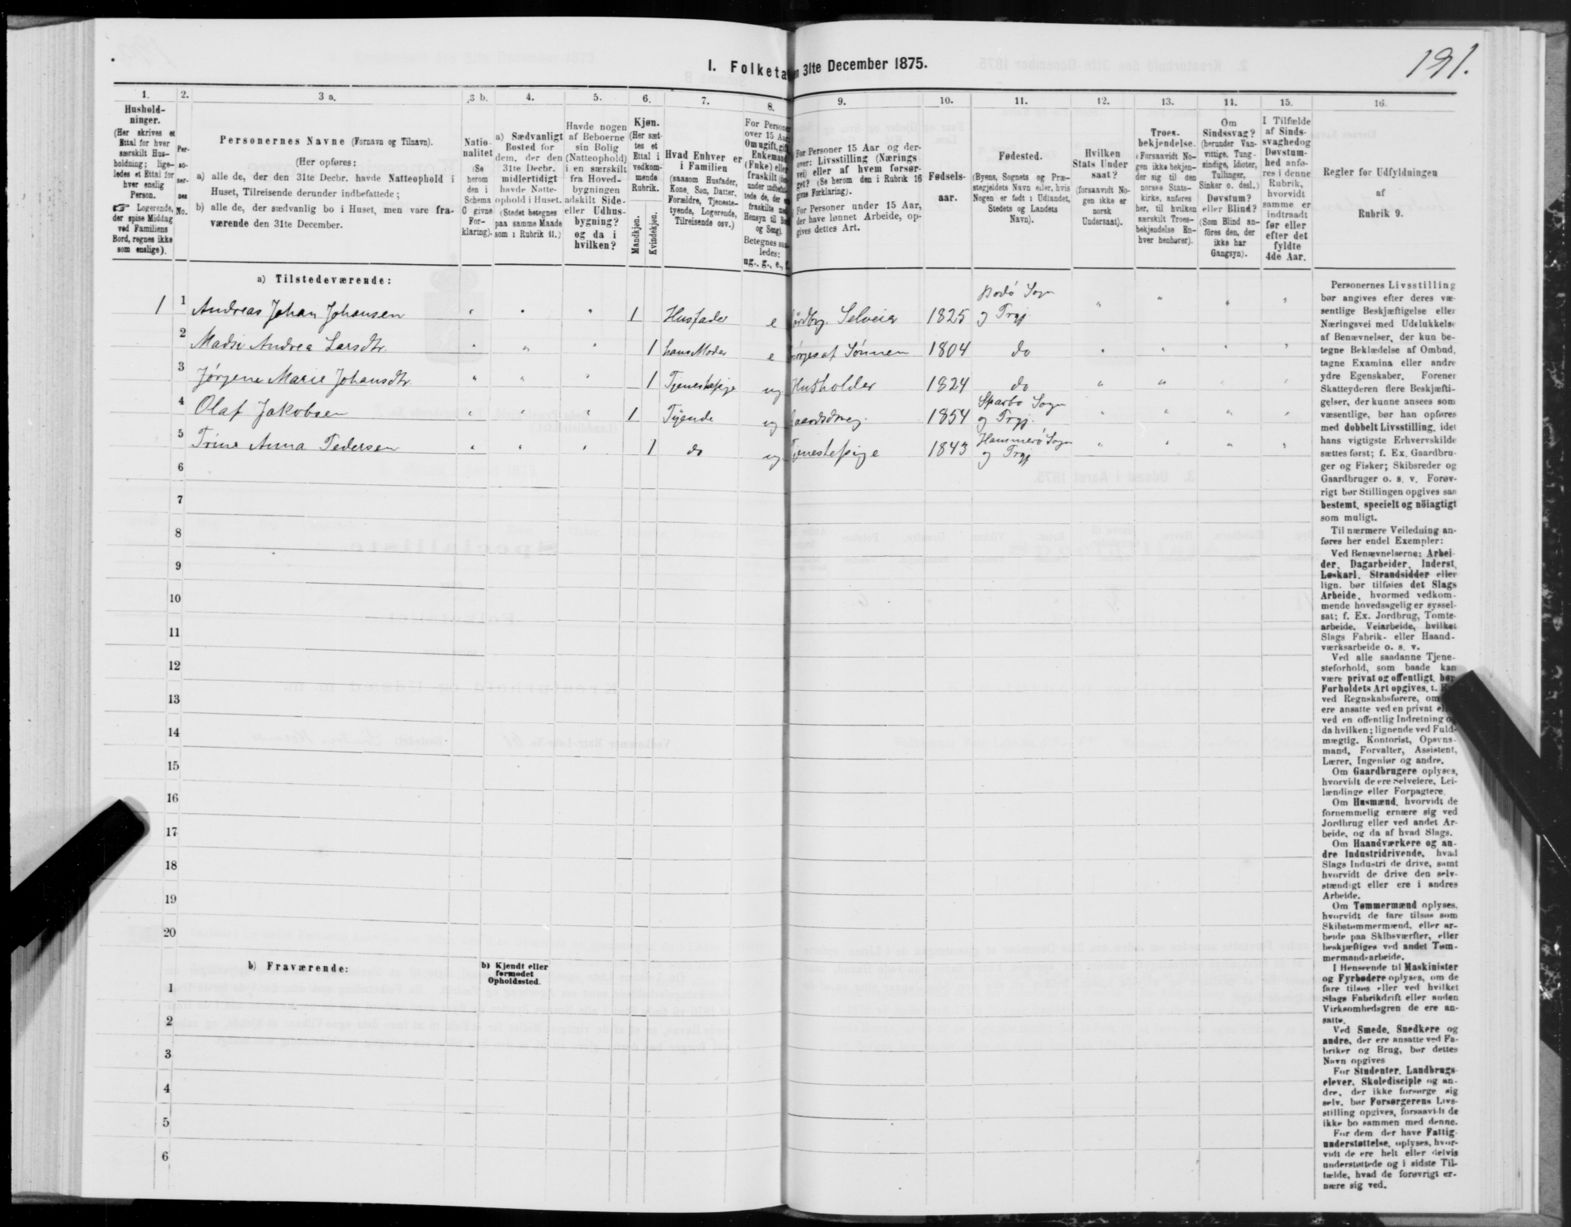 191.
I. Folketa en 31te December 1875.
1. 2. 3 a. 3 b. 4. 5. 6. 7. 8. 9. 10. 11. 12. 13. 14. 15. 16.
Hushold-
ninger.
(Her skrives et
Ettal for hver
særskilt Hus-
holdning; lige-
ledes et Ettal for
hver enslig
Person.
☞ Logerende,
der spise Middag
ved Familiens
Bord, regnes ikke
som enslige).
Per-
so-
ner-
nes
No.
Personernes Navne (Fornavn og Tilnavn).
(Her opføres:
a) alle de, der den 31te Decbr. havde Natteophold i
Huset, Tilreisende derunder indbefattede;
b) alle de, der sædvanlig bo i Huset, men vare fra-
værende den 31te December.
Natio-
nalitet
(Se
herom
den i
Schema
C givne
For-
klaring).
a) Sædvanligt
Bosted for
dem, der den
31te Decbr.
midlertidigt
havde Natte-
ophold i Huset.
(Stedet betegnes
paa samme Maade
som i Rubrik 11.)
Havde nogen
af Beboerne
sin Bolig
(Natteophold)
i en særskilt
fra Hoved-
bygningen
adskilt Side-
eller Udhus-
bygning?
og da i
hvilken?
Kjøn.
(Her sæt-
tes et
Ettal i
vedkom-
mende
Rubrik.
Mandkjøn.
Kvindekjøn.
Hvad Enhver er
i Familien
(saasom Husfader,
Kone, Søn, Datter,
Forældre, Tjeneste-
tyende, Logerende,
Tilreisende osv.)
For Persone
over 15 Aar
Om ugift, gift
Enkemand
(Enke) elle
fraskilt
under indbefat-
tede de, der ere
fraskilte med
Hensyn til B
og Seng).
Betegnes saa
ledes:
ug., g., e., f.
For Personer 15 Aar og der-
over: Livsstilling (Nærings
vei) eller af hvem forsør-
get? (Se herom den i Rubrik 16
givne Forklaring).
For Personer under 15 Aar,
der have lønnet Arbeide, op-
gives dettes Art.
Fødsels-
aar.
Fødested.
(Byens, Sognets og Præ-
stegjeldets Navn eller, hvis
Nogen er født i Udlandet,
Stedets og Landets
Navn).
Hvilken
Stats Under
saat?
(forsaavidt No-
gen ikke er
norsk
Undersaat).
Troes-
bekjendelse.
(Forsaavidt No-
gen ikke bekjen-
der sig til den
norske Stats-
kirke, anføres
her, til hvilken
særskilt Troes-
bekjendelse En-
hver henhører).
Om
Sindssvag?
(herunder Van-
vittige, Tung-
sindige, Idioter,
Tullinger,
Sinker o. desl.)
Døvstum?
eller Blind?
(Som Blind an-
føres den, der
ikke har
Gangsyn).
I Tilfælde
af Sinds-
svaghed og
Døvstum-
hed anfø-
res i denne
Rubrik,
hvorvidt
samme er
indtraadt
før eller
efter det
fyldte
4de Aar.
Regler for Udfyldningen
af
Rubrik 9.
a) Tilstedeværende:
1 1 Andreas Johan Johansen " " " 1 Husfader e Jordbrg. Selveier 1825 Bodø Sogn og Prgj " " " "
2 Madsi Andrea Larsdtr. " " " 1 hans Moder e Sørges af Sønnen 1804 do " " " "
3 Jørgene Marie Johansdtr " " " 1 Tjenestepige ug Husholder 1824 do " " " "
4 Olaf Jakobsen " " " 1 Tyende ug Gaardsdreng 1854 Skarbo Sogn og Prgj. " " " "
5 Trine Anna Pedersen " " " 1 do ug Tjenestepige 1843 Hammerø Sogn og Prgj " " " "
6
7
8
9
10
11
12
13
14
15
16
17
18
19
20
b) Fraværende:
b) Kjendt eller
formodet
Opholdssted.
1
2
3
4
5
6
Personernes Livsstilling
bør angives efter deres væ-
sentlige Beskjæftigelse eller
Næringsvei med Udelukkelse
af Benævnelser, der kun be-
tegne Beklædelse af Ombud,
tagne Examina eller andre
ydre Egenskaber. Forener
Skatteyderen flere Beskjæfti-
gelser, der kunne ansees som
væsentlige, bør han opføres
med dobbelt Livsstilling, idet
hans vigtigste Erhvervskilde
sættes først; f. Ex. Gaardbru-
ger og Fisker; Skibsreder og
Gaardbruger o. s. v. Forøv-
rigt bør Stillingen opgives saa
bestemt, specielt og nöiagtigt
som muligt.
Til nærmere Veiledning an-
føres her endel Exempler:
Ved Benævnelserne: Arbei-
der, Dagarbeider, Inderst,
Løskarl, Strandsidder eller
lign. bør tilføies det Slags
Arbeide, hvormed vedkom-
mende hovedsagelig er syssel-
sat; f. Ex. Jordbrug, Tomte-
arbeide, Veiarbeide, hvilket
Slags Fabrik- eller Haand-
værksarbeide o. s. v.
Ved alle saadanne Tjene-
steforhold, som baade kan
være privat og offentligt, bør
Forholdets Art opgives, t.
ved Regnskabsførere, om
ere ansatte ved en privat el
ved en offentlig Indretning og
da hvilken; lignende ved Fuld-
mægtig, Kontorist, Opsyns-
mand, Forvalter, Assistent,
Lærer, Ingeniør og andre.
Om Gaardbrugere oplyses,
hvorvidt de ere Selveiere, Lei-
lændinge eller Forpagtere.
Om Husmænd, hvorvidt de
fornemmelig ernære sig ved
Jordbrug eller ved andet Ar-
beide, og da af hvad Slags.
Om Haandværkere og an-
dre Industridrivende, hvad
Slags Industri de drive, samt
hvorvidt de drive den selv-
stændigt eller ere i andres
Arbeide.
Om Tømmermænd oplyses,
hvorvidt de fare tilsøs som
Skibstømmermænd, eller ar-
beide paa Skibsværfter, eller
beskjæftiges ved andet Tøm-
mermandsarbeide.
I Henseende til Maskinister
og Fyrbødere oplyses, om de
fare tilsøs eller ved hvilket
Slags Fabrikdrift eller anden
Virksomhedsgren de ere an-
satte.
Ved Smede, Snedkere og
andre, der ere ansatte ved Fa-
briker og Brug, bør dettes
Navn opgives
For Studenter, Landbrugs-
elever, Skoledisciple og an-
dre, der ikke forsørge sig
selv, bør Forsørgerens Livs-
stilling opgives, forsaavidt de
ikke bo sammen med denne.
For dem der have Fattig-
understøttelse, oplyses, hvor-
vidt de ere helt eller delvis
understøttede og i sidste Til-
fælde, hvad de forøvrigt er-
nære sig ved.